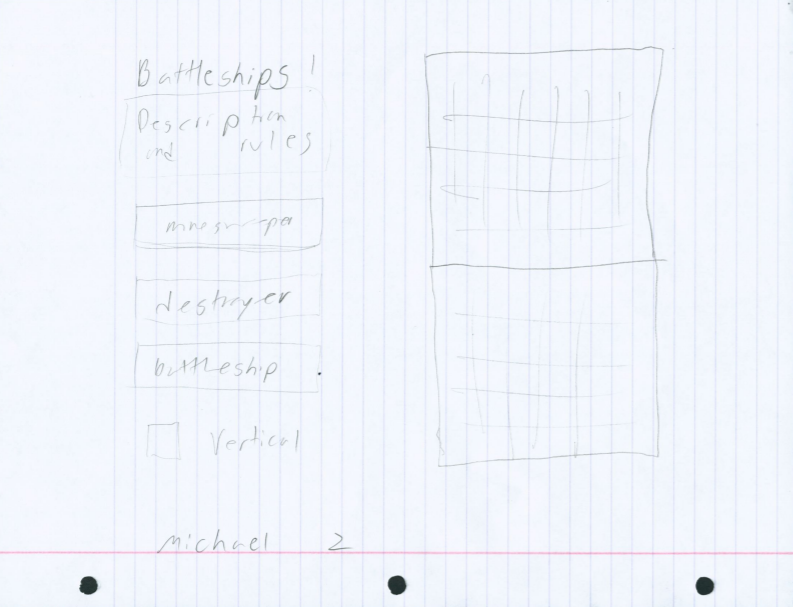 Battleships!
Description
and rules
minesweeper
destroyer
battleship
Vertical
Michael 2